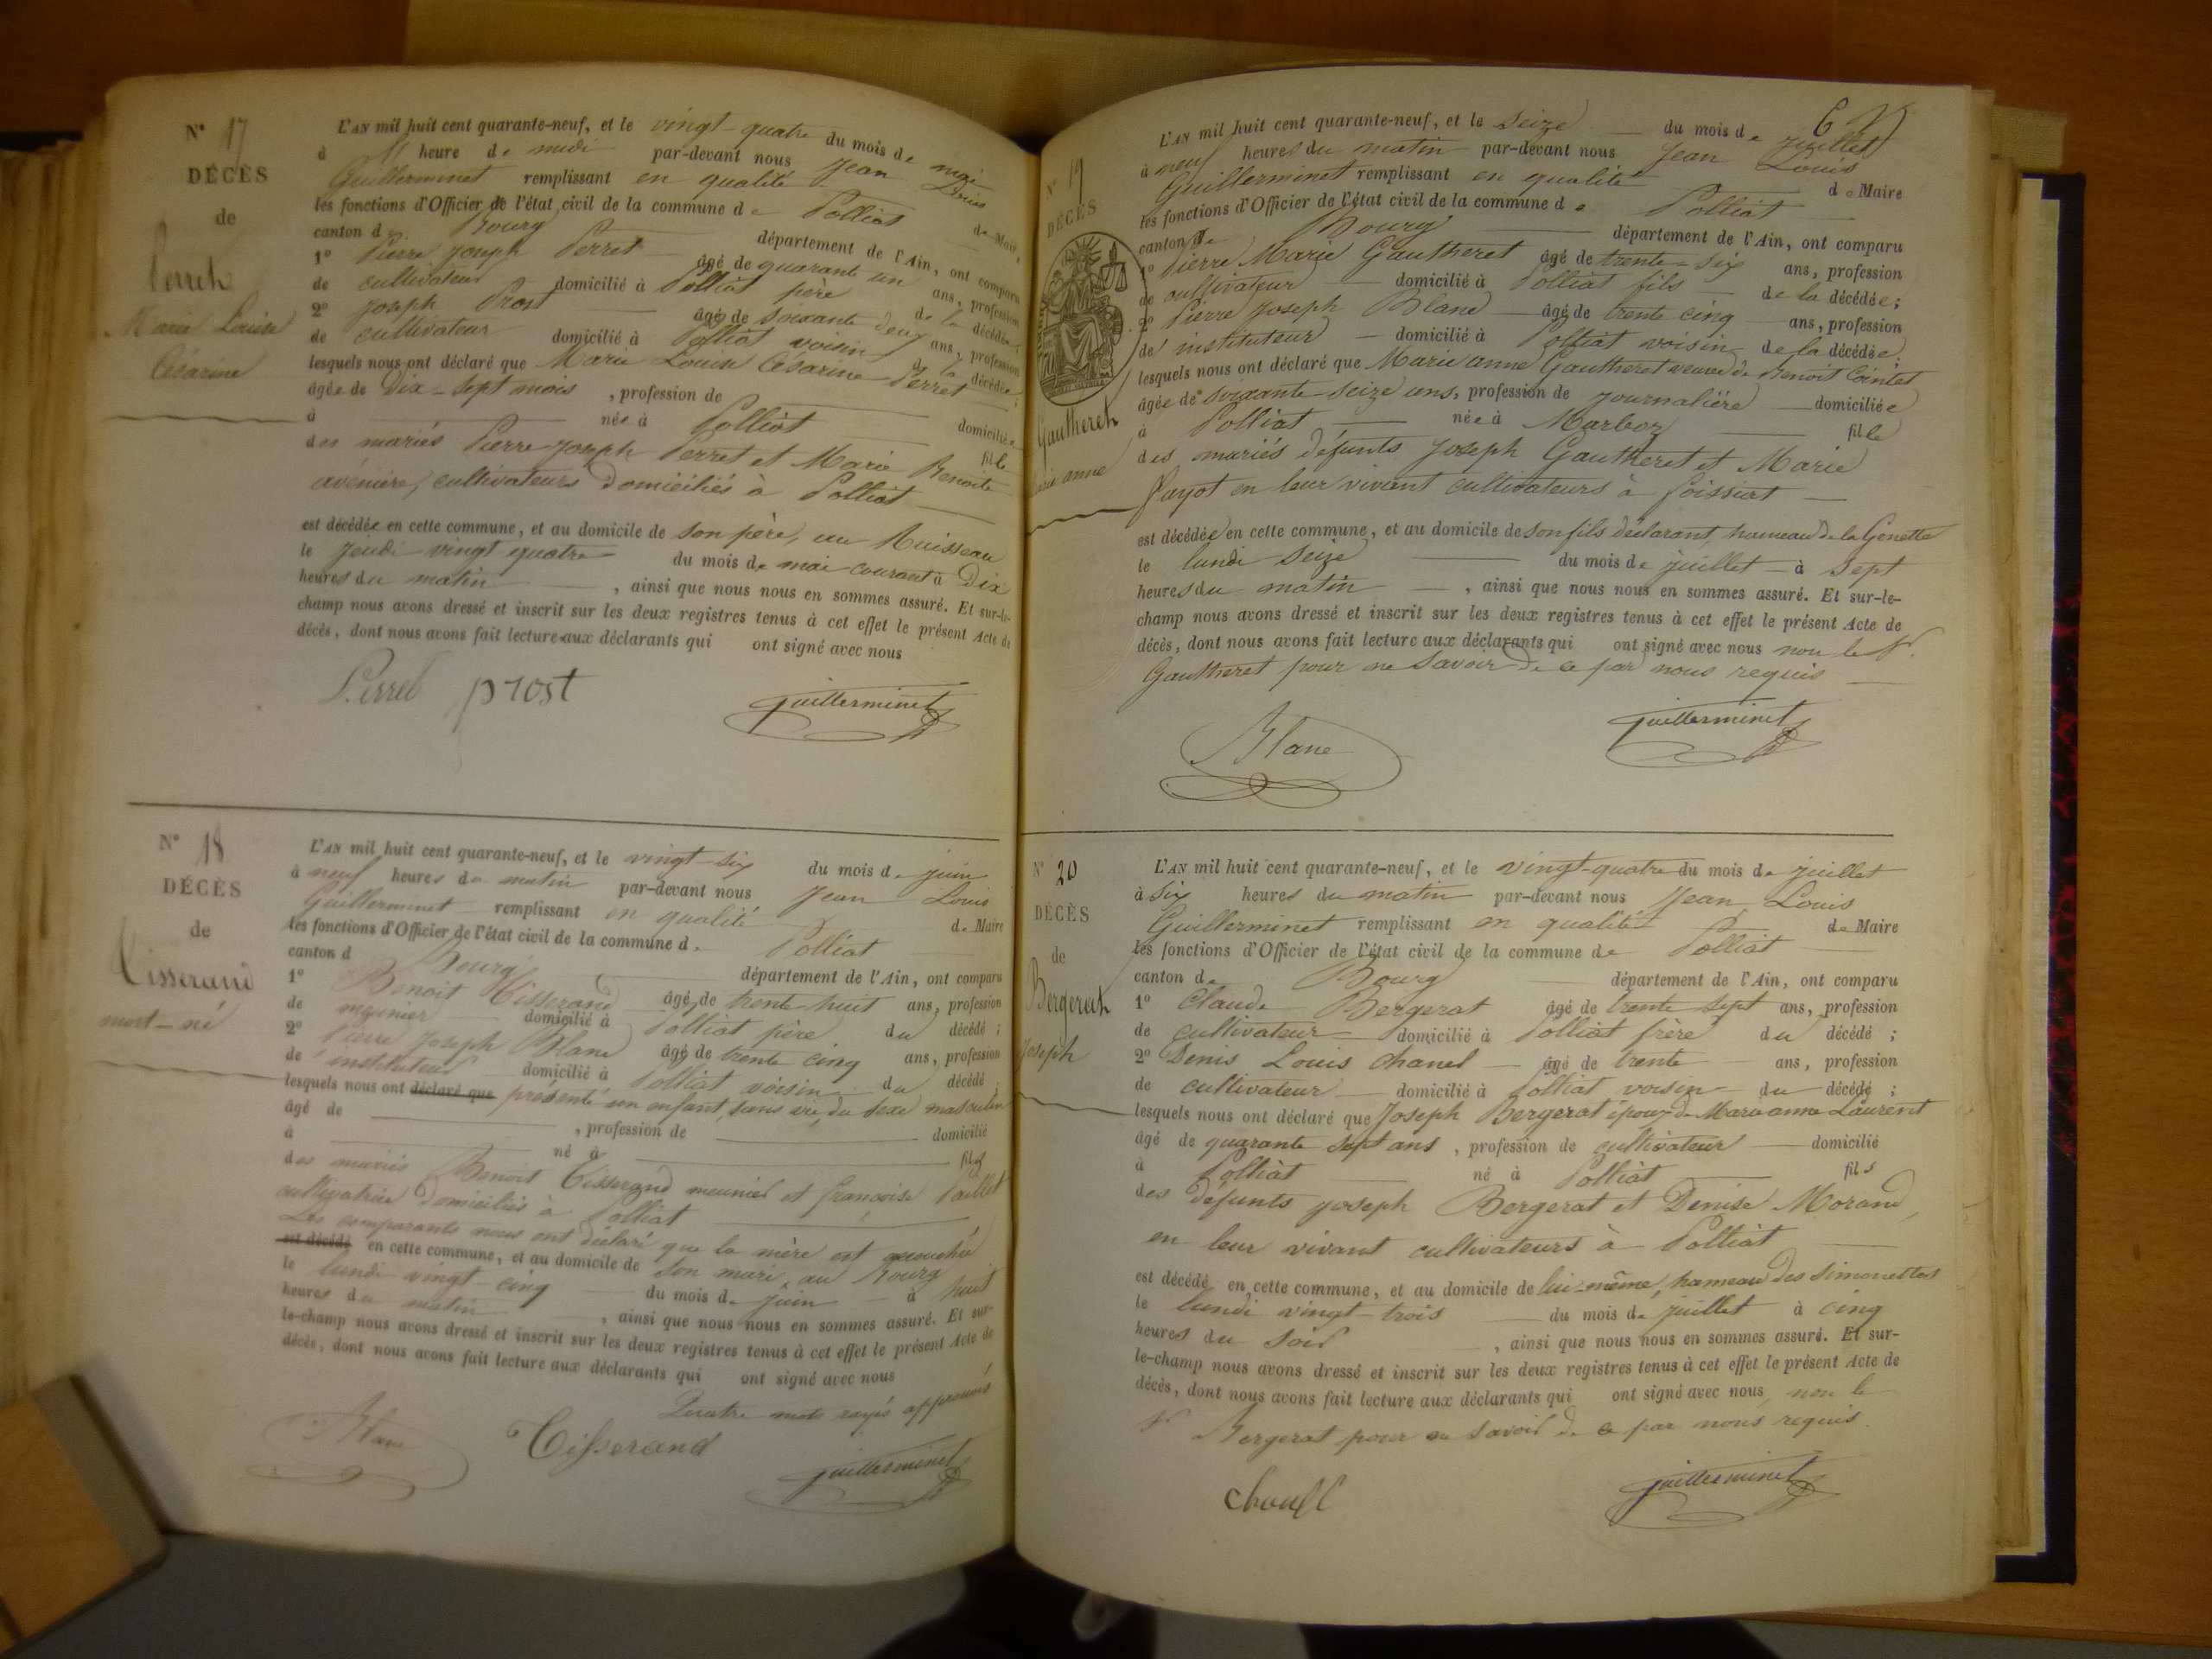 N° 17
DÉCÈS
de
Perret
Marie Louise
Césarine
L'AN mil huit cent quarante-neuf, et le vingt-quatre du mois de mai
à heure de midi par-devant nous Jean Louis
Guillerminet remplissant en qualité de Maire
les fonctions d'Officier de l'état civil de la commune de Polliat
canton d Bourg département de l'Ain, ont comparu
1° Pierre Joseph Perret âgé de quarante un ans, profession
de cultivateur domicilié à Polliat père de la décédée;
2° Joseph Prost âgé de soixante deux ans, profession
de cultivateur domicilié à Polliat voisin de la décédée;
lesquels nous ont déclaré que Marie Louise Césarine Perret
âgée de Dix-sept mois, profession de domiciliée
à née à Polliat fille
des mariés Pierre Joseph Perret et Marie Benoite
avenière, cultivateurs domiciliés à Polliat
est décédée en cette commune, et au domicile de son père, au Ruisseau
le jeudi vingt quatre du mois de mai courant à Dix
heures du matin, ainsi que nous nous en sommes assuré. Et sur-le-
champ nous avons dressé et inscrit sur les deux registres tenus à cet effet le présent Acte de
décès, dont nous avons fait lecture aux déclarants qui ont signé avec nous
Perret prost Guillerminet
N° 18
DÉCÈS
de
Tisserand
mort-né
L'AN mil huit cent quarante-neuf, et le vingt-six du mois de juin
à neuf heures du matin par-devant nous Jean Louis
Guillerminet remplissant en qualité de Maire
les fonctions d'Officier de l'état civil de la commune de Polliat
canton d Bourg département de l'Ain, ont comparu
1° Benoit Tisserand âgé de trente-huit ans, profession
de meunier domicilié à Polliat père du décédé;
2° Pierre Joseph Blanc âgé de trente cinq ans, profession
de instituteur domicilié à Polliat voisin du décédé
lesquels nous ont déclaré que présenté un enfant sans vie, du sexe masculin
âgé de, profession de domicilié
à né à fils
des mariés Benoit Tisserand meunier et françoise Paillet
cultivatrice domiciliés à Polliat
Les comparants nous ont déclaré que la mère est accouchée
est décédé en cette commune, et au domicile de son mari, au Bourg
le lundi vingt-cinq du mois de juin à huit
heures du matin, ainsi que nous nous en sommes assuré. Et sur-
le-champ nous avons dressé et inscrit sur les deux registres tenus à cet effet le présent Acte de
décès, dont nous avons fait lecture aux déclarants qui ont signé avec nous
Quatre mots rayés approuvés
Blanc Tisserand Guillerminet
6
N° 19
DÉCÈS
Gautheret
anne
L'AN mil huit cent quarante-neuf, et le Seize du mois de juillet
à neuf heures du matin par-devant nous Jean Louis
Guillerminet remplissant en qualité de Maire
les fonctions d'Officier de l'état civil de la commune de Polliat
canton de Bourg département de l'Ain, ont comparu
1° Pierre Marie Gautheret âgé de trente-six ans, profession
de cultivateur domicilié à Polliat fils de la décédée;
2° Pierre Joseph Blanc âgé de trente cinq ans, profession
de instituteur domicilié à Polliat voisin de la décédée;
lesquels nous ont déclaré que Marie anne Gautheret veuve de Benoit Cointet
âgée de soixante-seize ans, profession de journalière domiciliée
à Polliat née à Marboz fille
des mariés défunts Joseph Gautheret et Marie
Payot en leur vivant cultivateurs à foissiat
est décédée en cette commune, et au domicile de son fils déclarant, hameau de la Genette
le lundi seize du mois de juillet à sept
heures du matin, ainsi que nous nous en sommes assuré. Et sur-le-
champ nous avons dressé et inscrit sur les deux registres tenus à cet effet le présent Acte de
décès, dont nous avons fait lecture aux déclarants qui ont signé avec nous non le Sr.
Gautheret pour ne savoir de ce par nous requis
Blanc Guillerminet
N° 20
DÉCÈS
de
Bergerat
Joseph
L'AN mil huit cent quarante-neuf, et le vingt-quatre du mois de juillet
à six heures du matin par-devant nous Jean Louis
Guillerminet remplissant en qualité de Maire
les fonctions d'Officier de l'état civil de la commune de Polliat
canton de Bourg département de l'Ain, ont comparu
1° Claude Bergerat âgé de trente sept ans, profession
de cultivateur domicilié à Polliat frère du décédé;
2° Denis Louis chanel âgé de trente ans, profession
de cultivateur domicilié à Polliat voisin du décédé;
lesquels nous ont déclaré que Joseph Bergerat époux de Marie anne Laurent
âgé de quarante sept ans, profession de cultivateur domicilié
à Polliat né à Polliat fils
des défunts Joseph Bergerat et Denise Morand,
en leur vivant cultivateurs à Polliat
est décédé en cette commune, et au domicile de lui-même, hameau des simonettes
le lundi vingt-trois du mois de juillet à cinq
heures du soir, ainsi que nous nous en sommes assuré. Et sur-
le-champ nous avons dressé et inscrit sur les deux registres tenus à cet effet le présent Acte de
décès, dont nous avons fait lecture aux déclarants qui ont signé avec nous, non le
Sr Bergerat pour ne savoir de ce par nous requis.
Guillerminet